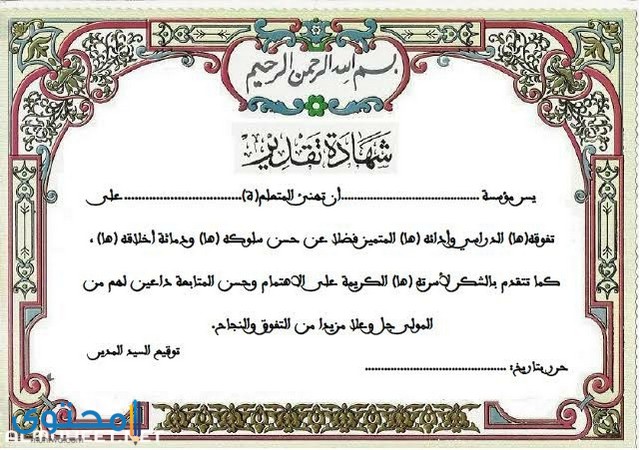 بسم الله الرحمن الرحيم
شهادة تقدير
يسر مؤسسة .......................................أن تهنئ المتعلم(ة)..................................على
تفوقه(ها) الدراسي وأدائه (ها) المتميز فضلا عن حسن سلوكه (ها) ودماثة أخلاقه (ها) ،
كما تتقدم بالشكر لأسرته (ها) الكريمة على الاهتمام وحسن المتابعة داعين لهم من
المولى جل وعلا مزيدا من التفوق والنجاح.
توقيع السيد المدير
حرر بتاريخ: ........................................
المحتوى